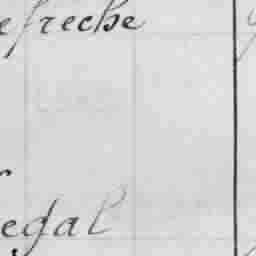 efreche
egal